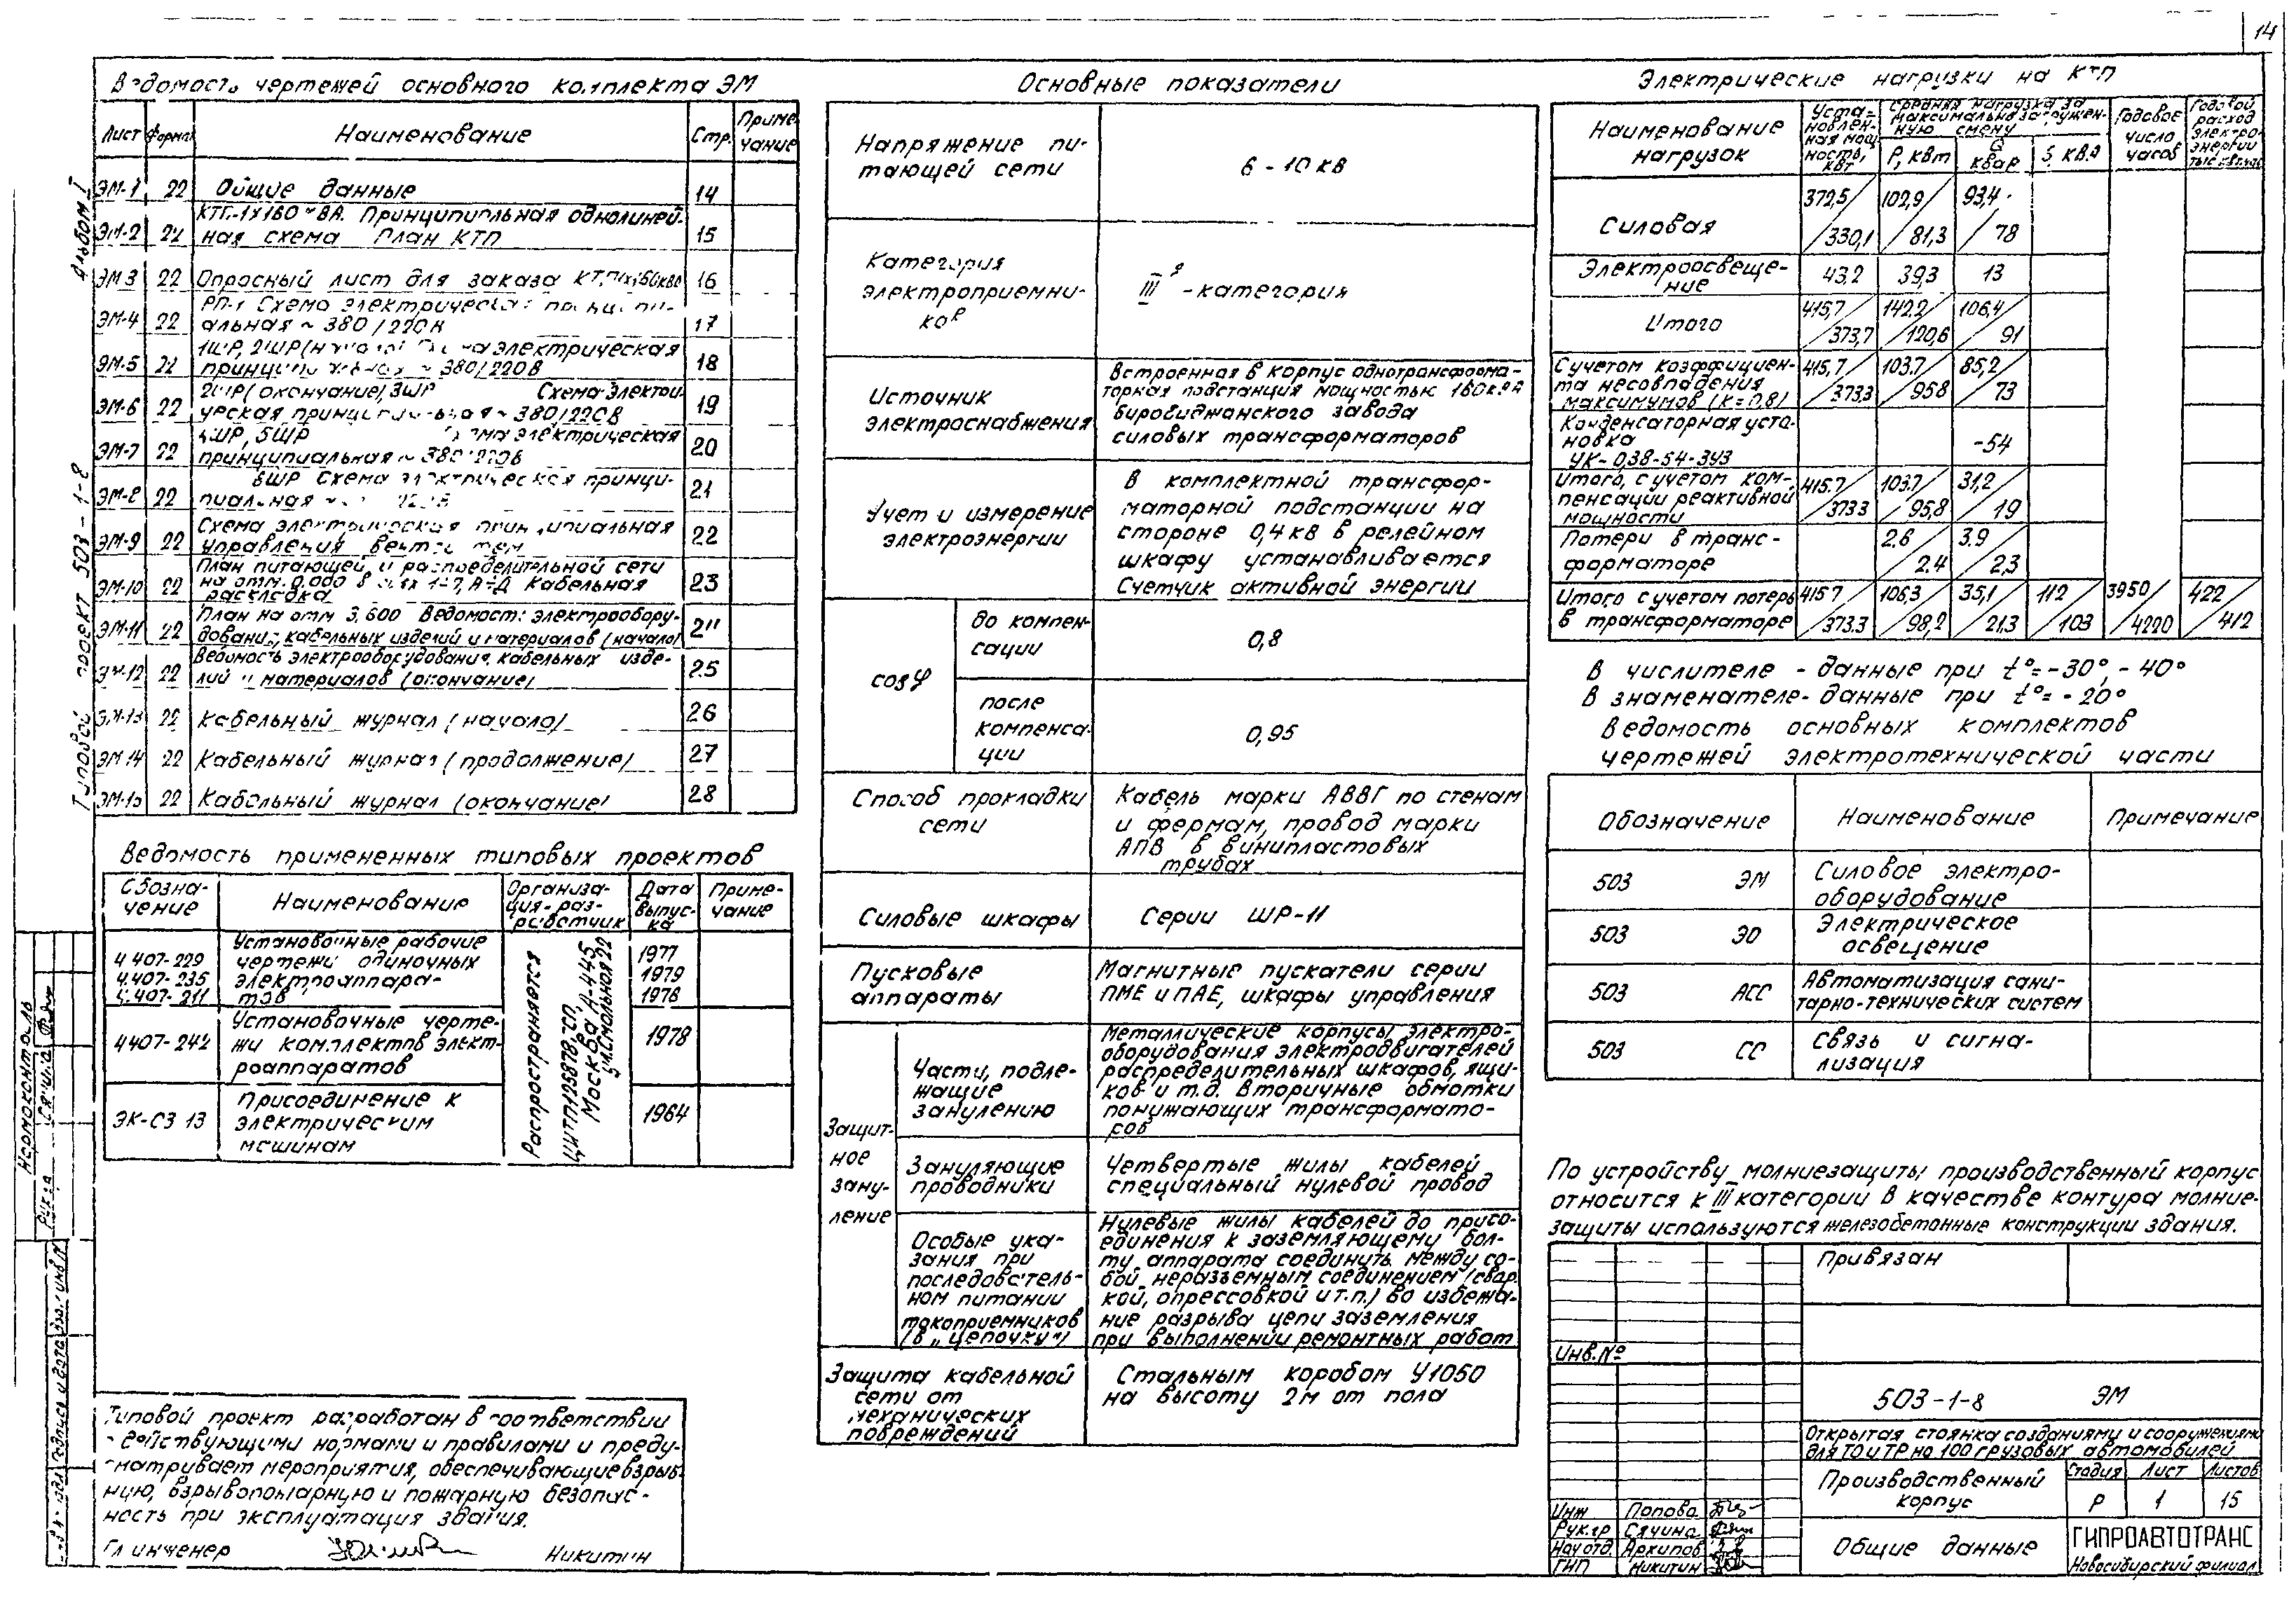 14
Альбом I
Типовой проект 503-1-8
Ведомость чертежей основного комплекта ЭМ
Лист Формат Наименование Стр. Приме-
чание
ЭМ-1 22 Общие данные 14
ЭМ-2 22 КТП-1х160 кВА. Принципиальная однолиней-
ная схема План КТП 15
ЭМ-3 22 Опросный лист для заказа КТП 1х160кВА 16
ЭМ-4 22 РП-1 Схема электрическая принципи-
альная ~ 380/220В 17
ЭМ-5 22 1ШР, 2ШР (начало) Схема электрическая
принципиальная ~ 380/220В 18
ЭМ-6 22 2ШР (окончание), 3ШР Схема электри-
ческая принципиальная ~ 380/220В 19
ЭМ-7 22 4ШР, 5ШР Схема электрическая
принципиальная ~ 380/220В 20
ЭМ-8 22 6ШР Схема электрическая принци-
пиальная 21
ЭМ-9 22 Схема электрическая принципиальная
управления 22
ЭМ-10 22 План питающей и распределительной сети
на отм. 0.000 в осях 1-7, А-Д Кабельная
раскладка 23
ЭМ-11 22 План на отм 3,600 Ведомость электрообору-
дования, кабельных изделий и материалов (начало) 24
ЭМ-12 22 Ведомость электрооборудования, кабельных изде-
лий и материалов (окончание) 25
ЭМ-13 22 Кабельный журнал (начало) 26
ЭМ-14 22 Кабельный журнал (продолжение) 27
ЭМ-15 22 Кабельный журнал (окончание) 28
Ведомость примененных типовых проектов
Обозна-
чение Наименование Организа-
ция-раз-
работчик Дата
выпус-
ка Приме-
чание
4 407-229 Установочные рабочие 1977
4.407-235 чертежи одиночных 1979
4.407-211 электроаппара-
тов 1978
4407-242 Установочные черте-
жи комплектов элект-
роаппаратов 1978
ЭК-СЗ 13 Присоединение к
электрическим
машинам 1964
Распространяется
ЦИТП 125878, ГСП,
Москва А-445
ул. Смольная 22
Типовой проект разработан в соответствии
с действующими нормами и правилами и преду-
сматривает мероприятия, обеспечивающие взрыв-
ную, взрывопожарную и пожарную безопас-
ность при эксплуатация здания.
Гл инженер Никитин
Основные показатели
Напряжение пи-
тающей сети 6-10 кв
Категория
электроприемни-
ков III я - категория
Источник
электроснабжения Встроенная в корпус однотрансформа-
торная подстанция мощностью 160 к.в.а
Биробиджанского завода
силовых трансформаторов
Учет и измерение
электроэнергии В комплектной трансфор-
маторной подстанции на
стороне 0,4 кв в релейном
шкафу устанавливается
счетчик активной энергии
cos φ до компен-
сации 0,8
после
компенса-
ции 0,95
Способ прокладки
сети Кабель марки АВВГ по стенам
и фермам, провод марки
АПВ в винипластовых
трубах
Силовые шкафы Серии ШР-11
Пусковые
аппараты Магнитные пускатели серии
ПМЕ и ПАЕ, шкафы управления
Защит-
ное
зану-
ление
Части, подле-
жащие
занулению Металлические корпусы электро-
оборудования электродвигателей
распределительных шкафов, ящи-
ков и т.д. Вторичные обмотки
понижающих трансформато-
ров
Зануляющие
проводники Четвертые жилы кабелей
специальный нулевой провод
Особые ука-
зания при
последователь-
ном питании
токоприемников
(в „цепочку") Нулевые жилы кабелей до присо-
единения к заземляющему бол-
ту аппарата соединить между со-
бой неразъемным соединением (свар-
кой, опрессовкой и т.п.) во избежа-
ние разрыва цепи заземления
при выполнении ремонтных работ
Защита кабельной
сети от
механических
повреждений Стальным коробом У1050
на высоту 2м от пола
Электрические нагрузки на КТП
Наименование
нагрузок Уста-
новлен-
ная мощ-
ность,
квт Средняя нагрузка за
максимально загружен-
ную смену
P, квт Q квар S, кв.а Годовое
число
часов Годовой
расход
электро-
энергии
тыс квт.час
Силовая 372,5/330,1 102,9/81,3 93,4/78
Электроосвеще-
ние 43,2 39,3 13
Итого 415,7/373,7 142,2/120,6 106,4/91
С учетом коэффициен-
та несовпадения
максимумов (К=0,8) 415,7/373,3 103,7/95,8 85,2/73
Конденсаторная уста-
новка
УК-0,38-54-3У3 -54
Итого, с учетом ком-
пенсации реактивной
мощности 415.7/373.3 103.7/95,8 31,2/19
Потери в транс-
форматоре 2.6/2.4 3.9/2,3
Итого с учетом потерь
в трансформаторе 415.7/373.3 106,3/98,2 35,1/21,3 112/103 3950/4220 422/412
В числителе - данные при t°= -30°, -40°
В знаменателе - данные при t°= -20°
Ведомость основных комплектов
чертежей электротехнической части
Обозначение Наименование Примечание
503 ЭМ Силовое электро-
оборудование
503 ЭО Электрическое
освещение
503 АСС Автоматизация сани-
тарно-технических систем
503 СС Связь и сигна-
лизация
По устройству молниезащиты производственный корпус
относится к III категории В качестве контура молние-
защиты используются железобетонные конструкции здания.
Привязан
Инв.№
503-1-8 ЭМ
Открытая стоянка со зданиями и сооружениями
для ТО и ТР на 100 грузовых автомобилей
Производственный
корпус
Стадия Лист Листов
Р 1 15
Инж Попова
Рук.гр Сячина
Нач отд Архипов
ГИП Никитин
Общие данные
ГИПРОАВТОТРАНС
Новосибирский филиал
Нормоконтроль
Рук гр Сячина
Подпись и дата